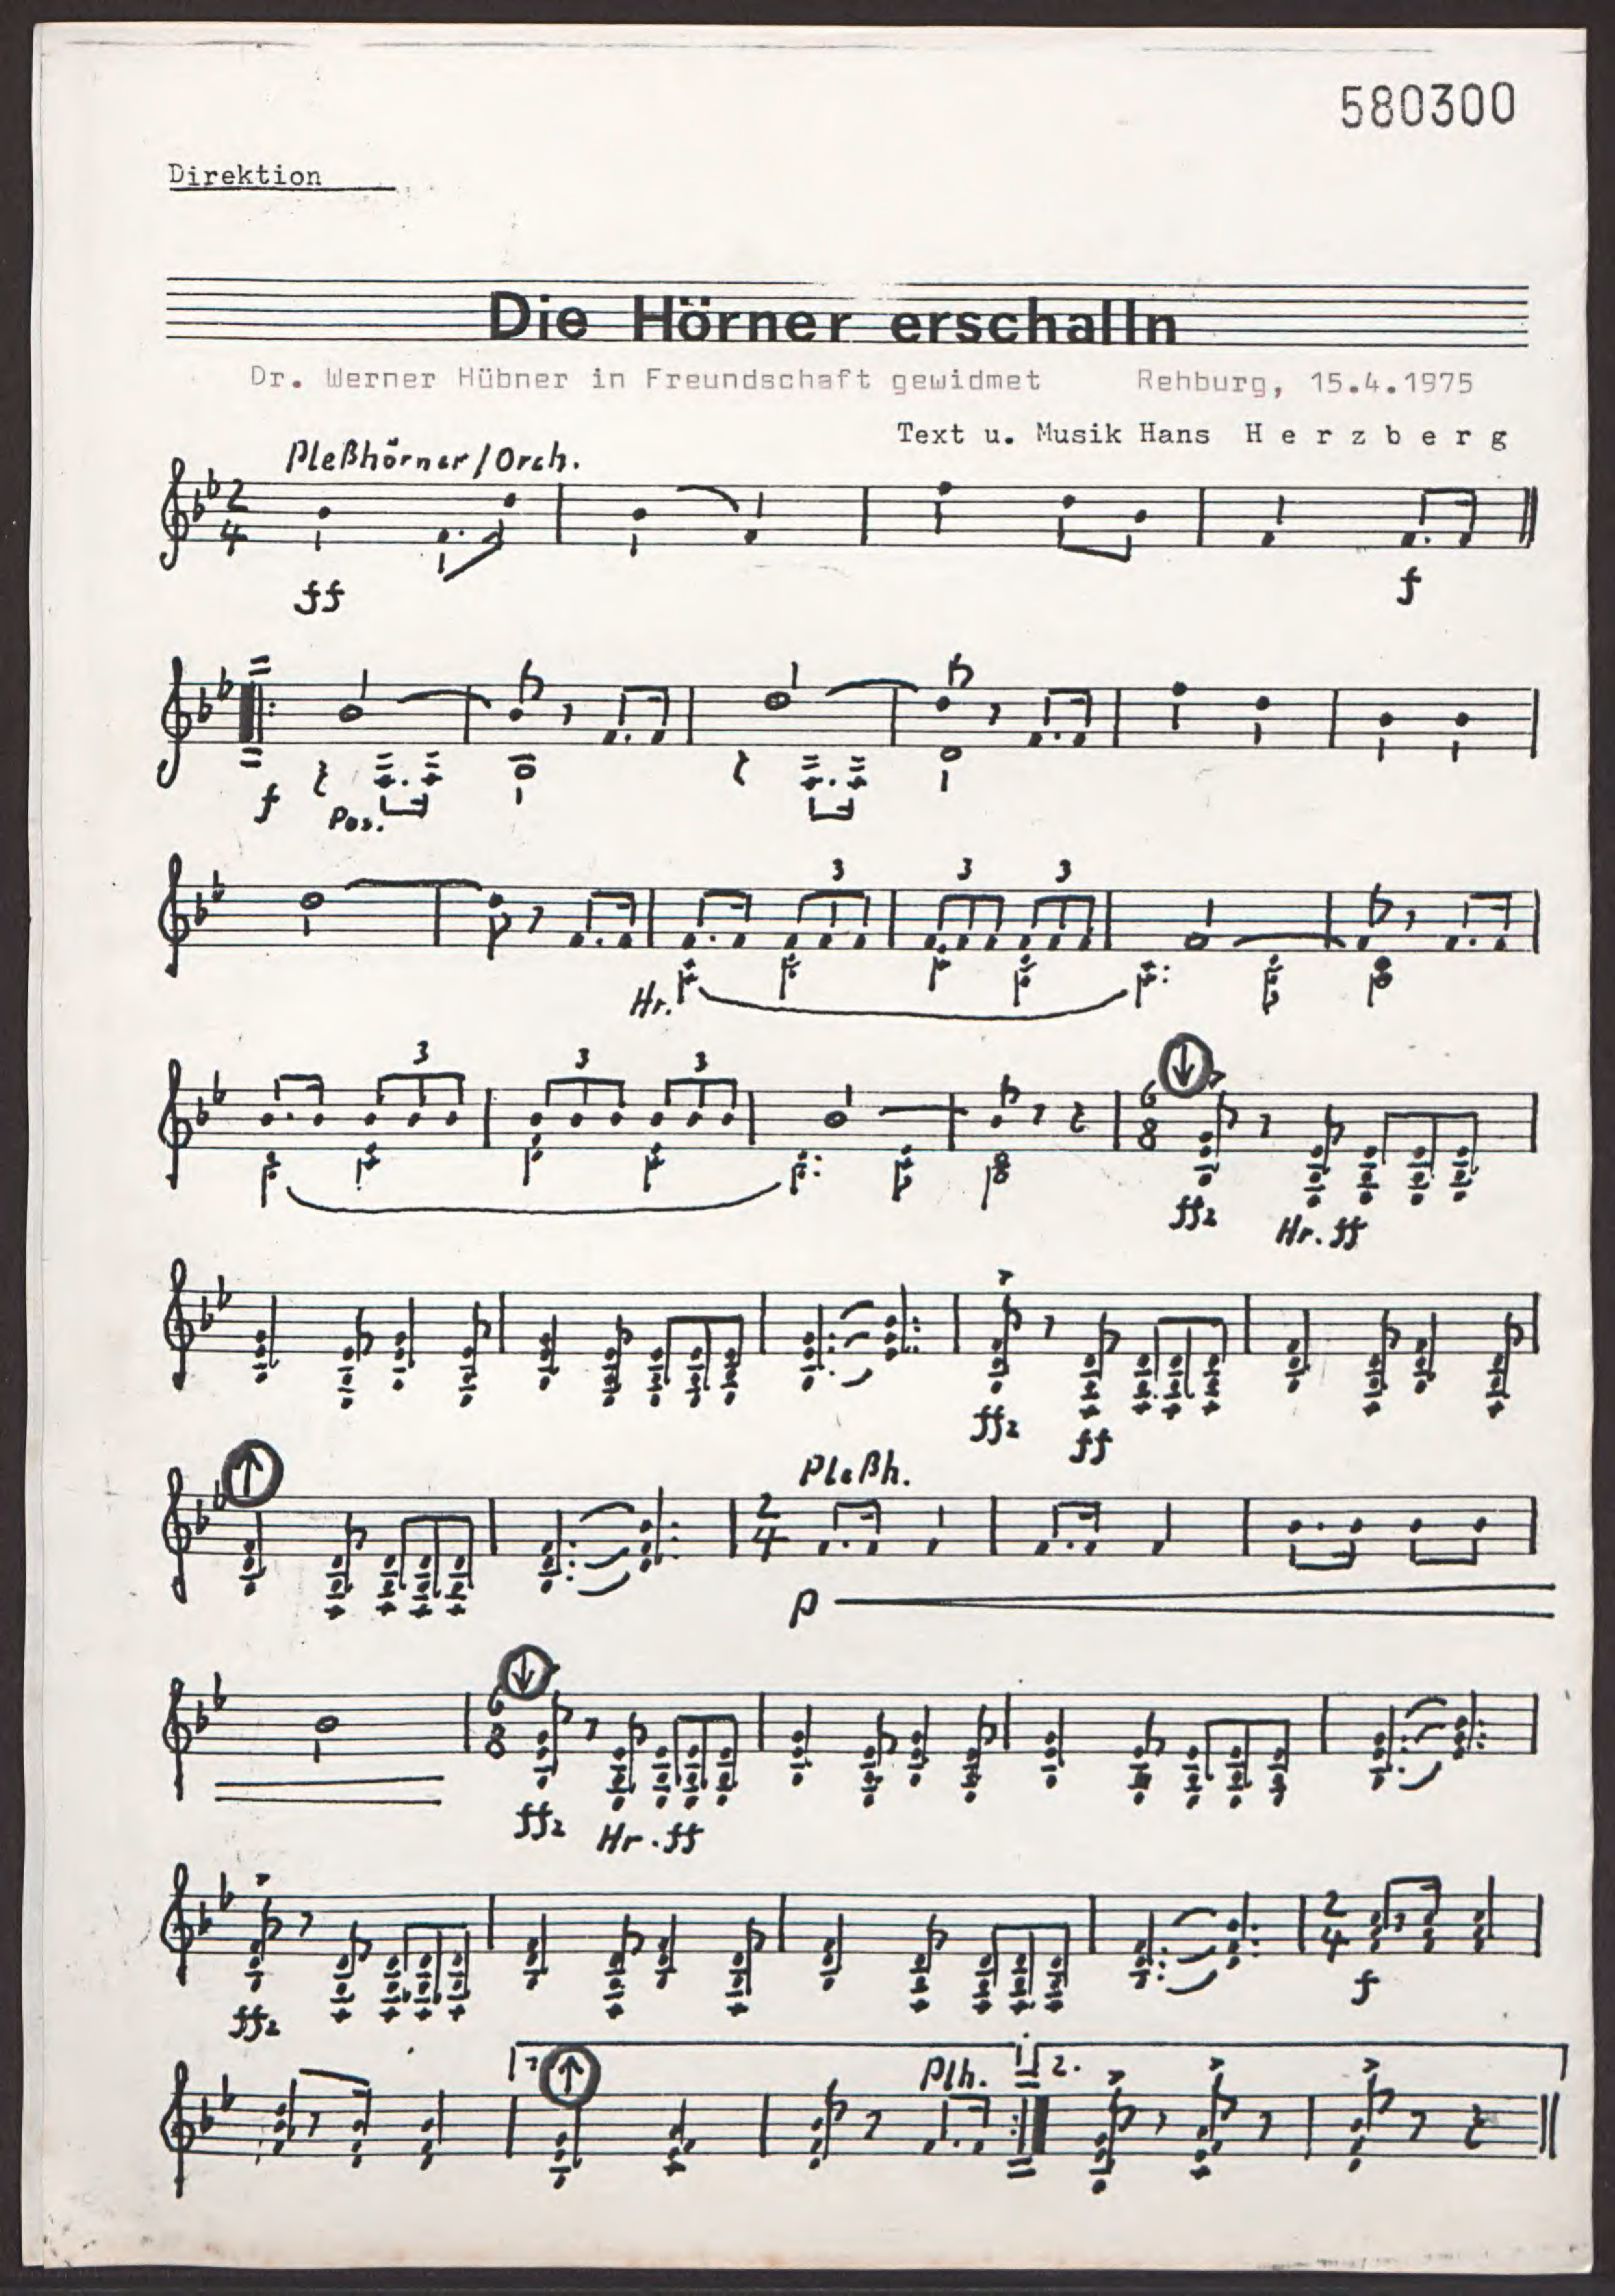 580300
Direktion
Die Hörner erschalln
Dr. Werner Hübner in Freundschaft gewidmet Rehburg, 15.4.1975
Text u. Musik Hans Herzberg
Pleßhörner/Orch.
2
4
ff
f
f
Pos.
3 3 3
Hr.
3 3 3
6
8
ffz
Hr. ff
ffz
ff
Pleßh.
2
4
p
6
8
ffz
Hr. ff
2
4
ffz
f
1. Plh. 2.